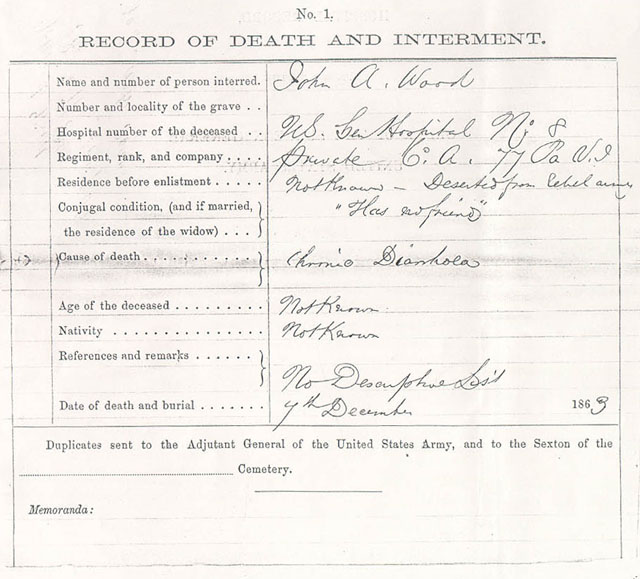 No. 1.
RECORD OF DEATH AND INTERMENT.
Name and number of person interred. John A. Wood
Number and locality of the grave . .
Hospital number of the deceased . . U.S. Gen Hospital No. 8
Regiment, rank, and company . . . . private C. A. 77 Pa V. I
Residence before enlistment . . . . Not Known – Deserted from rebel army
Conjugal condition, (and if married, "Has no friend"
the residence of the widow) . . .
Cause of death . . . . . . . . . . . Chronic Diarrhoea
Age of the deceased . . . . . . . . . Not Known.
Nativity . . . . . . . . . . . . . . Not Known
References and remarks . . . . . .
No Descriptive List
Date of death and burial . . . . . . . 7th December 1863
Duplicates sent to the Adjutant General of the United States Army, and to the Sexton of the
Cemetery.
Memoranda: